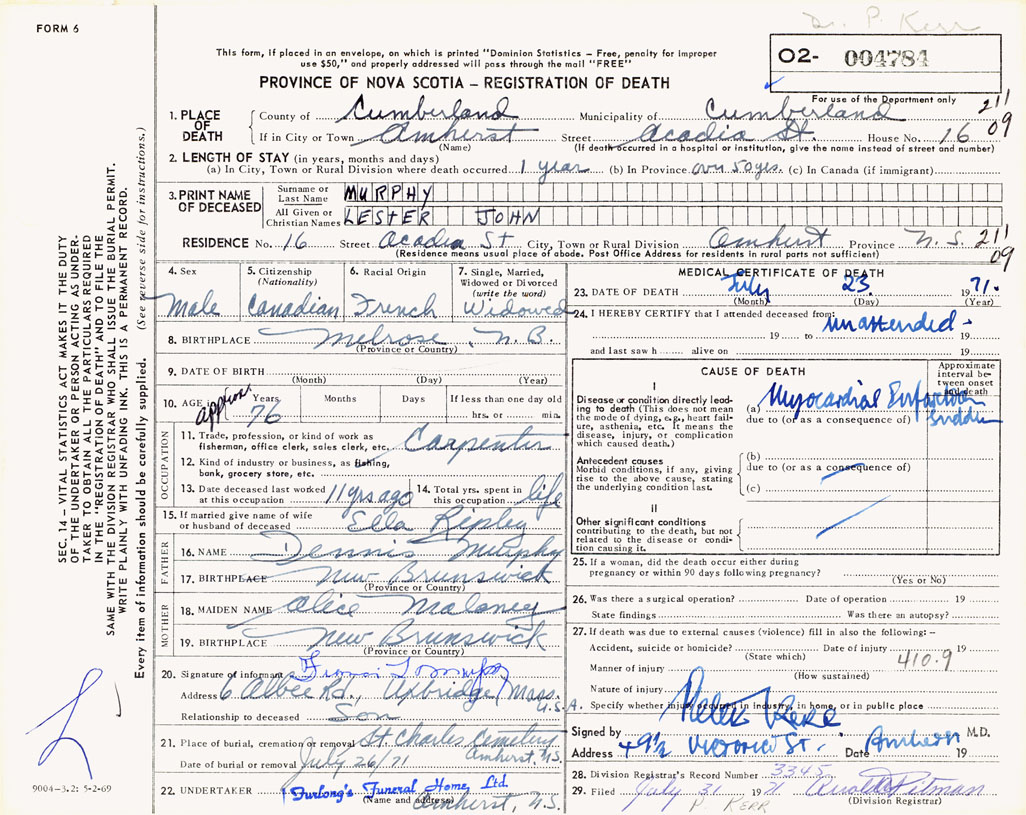 FORM 6
Dr. P. Kerr
This form, if placed in an envelope, on which is printed "Dominion Statistics – Free, penalty for improper
use $50," and properly addressed will pass through the mail "FREE"
O2- 004784
PROVINCE OF NOVA SCOTIA – REGISTRATION OF DEATH
For use of the Department only
1. PLACE OF DEATH
County of Cumberland Municipality of Cumberland 211
If in City or Town Amherst Street Acadia St. House No. 16 09
(Name) (If death occurred in a hospital or institution, give the name instead of street and number)
2. LENGTH OF STAY (in years, months and days)
(a) In City, Town or Rural Division where death occurred 1 year (b) In Province over 50 yrs. (c) In Canada (if immigrant)
3. PRINT NAME OF DECEASED
Surname or Last Name MURPHY
All Given or Christian Names LESTER JOHN
RESIDENCE No. 16 Street Acadia St City, Town or Rural Division Amherst Province N.S. 211
(Residence means usual place of abode. Post Office Address for residents in rural parts not sufficient) 09
4. Sex Male
5. Citizenship (Nationality) Canadian
6. Racial Origin French
7. Single, Married, Widowed or Divorced (write the word) Widowed
8. BIRTHPLACE Melrose, N.B.
(Province or Country)
9. DATE OF BIRTH
(Month) (Day) (Year)
10. AGE in approx Years 76 Months Days If less than one day old
hrs. or min.
OCCUPATION
11. Trade, profession, or kind of work as
fisherman, office clerk, sales clerk, etc. Carpenter
12. Kind of industry or business, as fishing,
bank, grocery store, etc.
13. Date deceased last worked at this occupation 11 yrs ago
14. Total yrs. spent in this occupation life
15. If married give name of wife
or husband of deceased Ella Ripley
FATHER
16. NAME Dennis Murphy
17. BIRTHPLACE New Brunswick
(Province or Country)
MOTHER
18. MAIDEN NAME Alice Maloney
19. BIRTHPLACE New Brunswick
(Province or Country)
20. Signature of informant
Address 6 Albee Rd., Uxbridge, Mass. U.S.A.
Relationship to deceased Son
21. Place of burial, cremation or removal St Charles Cemetery
Amherst, N.S.
Date of burial or removal July 26/71
22. UNDERTAKER Furlong's Funeral Home, Ltd.
(Name and address) Amherst, N.S.
MEDICAL CERTIFICATE OF DEATH
23. DATE OF DEATH July 23 1971.
(Month) (Day) (Year)
24. I HEREBY CERTIFY that I attended deceased from: unattended -
19 to 19
and last saw h alive on 19
CAUSE OF DEATH
Approximate interval between onset and death
I
Disease or condition directly leading to death (This does not mean the mode of dying, e.g., heart failure, asthenia, etc. It means the disease, injury, or complication which caused death.)
(a) Myocardial Infarction Sudden
due to (or as a consequence of)
Antecedent causes
Morbid conditions, if any, giving rise to the above cause, stating the underlying condition last.
(b)
due to (or as a consequence of)
(c)
II
Other significant conditions
contributing to the death, but not related to the disease or condition causing it.
25. If a woman, did the death occur either during
pregnancy or within 90 days following pregnancy?
(Yes or No)
26. Was there a surgical operation? Date of operation 19
State findings Was there an autopsy?
27. If death was due to external causes (violence) fill in also the following: –
Accident, suicide or homicide? Date of injury 19
(State which) 410.9
Manner of injury
(How sustained)
Nature of injury
Specify whether injury occurred in industry, in home, or in public place
Signed by Kerr M.D.
Address 49½ Victoria St. Date Amherst 19
28. Division Registrar's Record Number 3345
29. Filed July 31 1971 Arnold Pitman
P. KERR (Division Registrar)
SEC. 14 – VITAL STATISTICS ACT MAKES IT THE DUTY
OF THE UNDERTAKER OR PERSON ACTING AS UNDER-
TAKER TO OBTAIN ALL THE PARTICULARS REQUIRED
IN THE "REGISTRATION OF DEATH" AND TO FILE THE
SAME WITH THE DIVISION REGISTRAR WHO SHALL ISSUE THE BURIAL PERMIT.
WRITE PLAINLY WITH UNFADING INK. THIS IS A PERMANENT RECORD.
Every item of information should be carefully supplied. (See reverse side for instructions.)
9004-3.2: 5-2-69